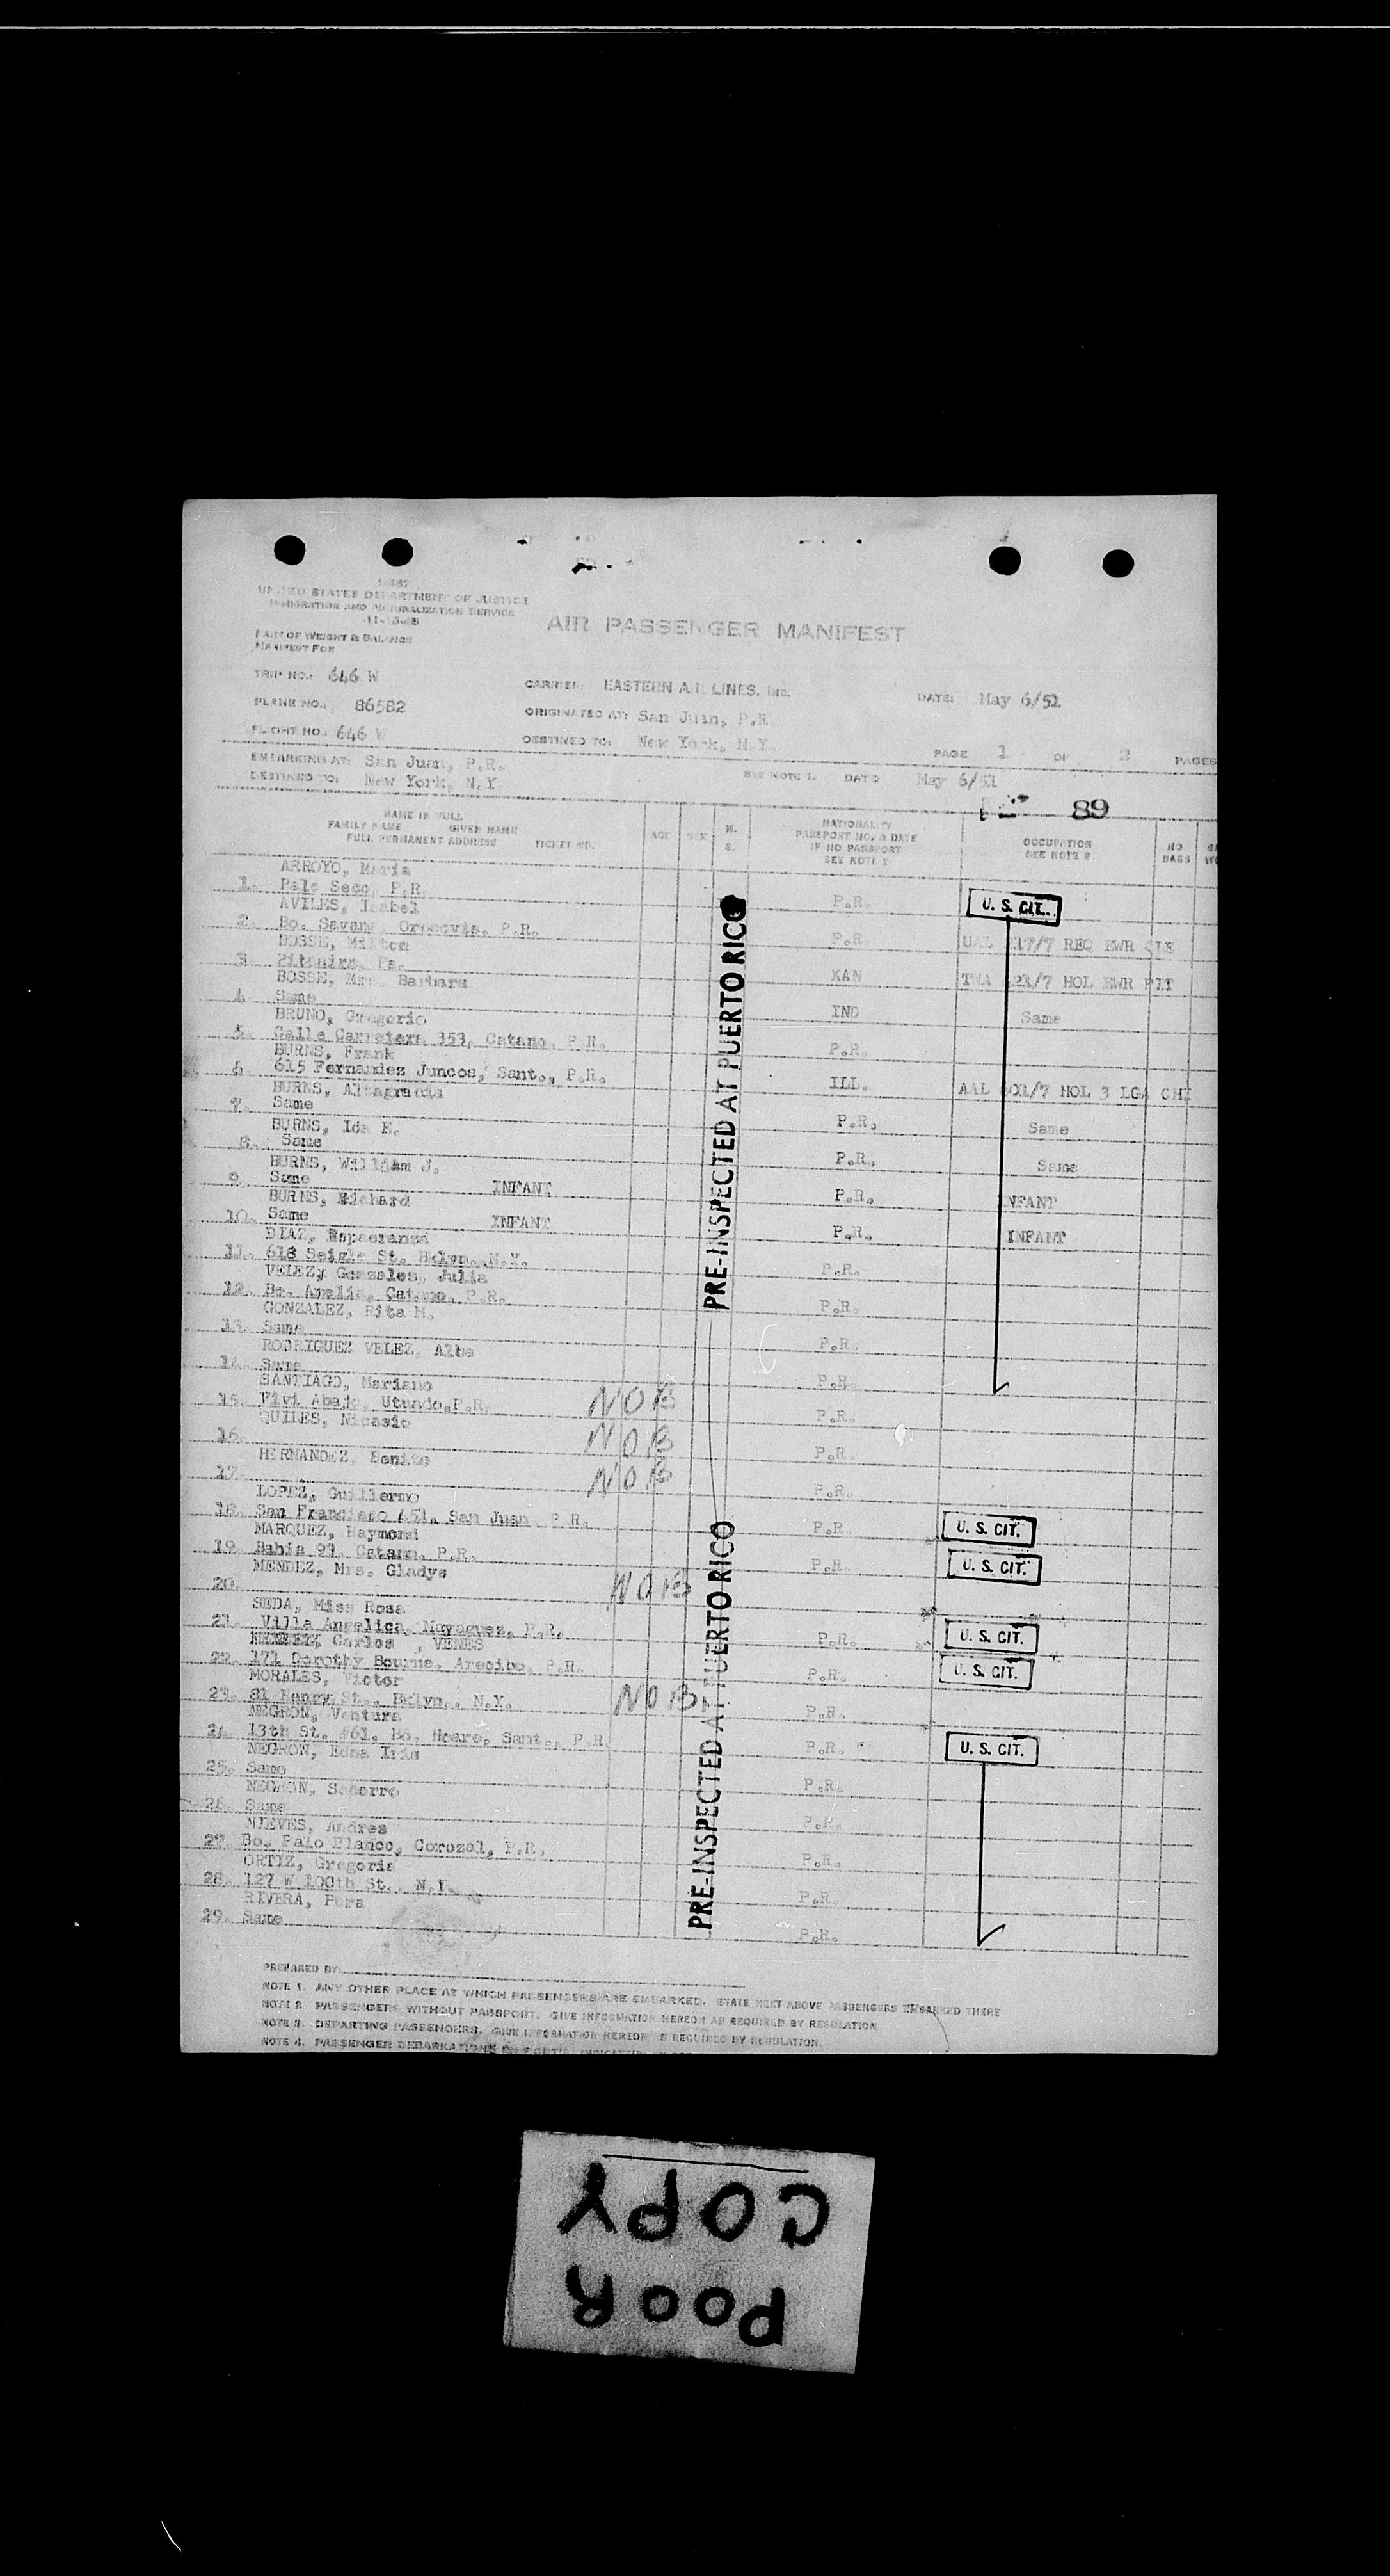 16487
UNITED STATES DEPARTMENT OF JUSTICE
IMMIGRATION AND NATURALIZATION SERVICE
11-15-48
AIR PASSENGER MANIFEST
PART OF WEIGHT & BALANCE
MANIFEST FOR
TRIP NO.: 646 W
CARRIER: EASTERN AIR LINES, INC.
DATE: May 6/51
PLANE NO.: 86582
ORIGINATED AT: San Juan, P.R.
FLIGHT NO.: 646 W
DESTINED TO: New York, N.Y.
PAGE 1 OF 2 PAGES
EMBARKING AT: San Juan, P.R.
SEE NOTE 1. DATE: May 6/51
DESTINED TO: New York, N.Y.
89
NAME IN FULL
FAMILY NAME GIVEN NAME
FULL PERMANENT ADDRESS TICKET NO.
AGE
SEX
M.
S.
NATIONALITY
PASSPORT NO. & DATE
IF NO PASSPORT
SEE NOTE 2
OCCUPATION
SEE NOTE 3
NO
BAGS
PRE-INSPECTED AT PUERTO RICO
ARROYO, Maria
1. Palo Seco, P.R. P.R. U. S. CIT.
AVILES, Isabel
2. Bo. Savana, Orocovis, P.R. P.R. UAL 217/7 REQ EWR CLE
BOSSE, Milton
3. Pitcairn, Pa. KAN TWA 221/7 HOL EWR PIT
BOSSE, Mrs. Barbara
4. Same IND Same
BRUNO, Gregorio
5. Calle Carretera 353, Catano, P.R. P.R.
BURNS, Frank
6. 615 Fernandez Juncos, Sant., P.R. ILL. AAL 601/7 HOL 3 LGA CHI
BURNS, Altagracia
7. Same P.R. Same
BURNS, Ida E.
8. Same P.R. Same
BURNS, William J.
9. Same INFANT P.R. INFANT
BURNS, Richard
10. Same INFANT P.R. INFANT
DIAZ, Esperanza
11. 618 Seigle St. Bklyn., N.Y. P.R.
VELEZ, Gonzales, Julia
12. Bo. Amelia, Catano, P.R. P.R.
GONZALEZ, Rita M.
13. Same P.R.
RODRIGUEZ VELEZ, Alba
14. Same P.R.
SANTIAGO, Mariano
15. Vivi Abajo, Utuado, P.R. NOB P.R.
QUILES, Nicasio
16. NOB P.R.
HERNANDEZ, Benito
17. NOB P.R.
LOPEZ, Guillermo
18. San Francisco 451, San Juan, P.R. P.R. U. S. CIT.
MARQUEZ, Raymond
19. Bahia 93, Catano, P.R. P.R. U. S. CIT.
MENDEZ, Mrs. Gladys
20. NOB
SEDA, Miss Rosa
21. Villa Angelica, Mayaguez, P.R. P.R. U. S. CIT.
Carlos, VENES
22. 171 Dorothy Bourne, Arecibo, P.R. P.R. U. S. CIT.
MORALES, Victor
23. 81 Henry St., Bklyn., N.Y. NOB P.R.
NEGRON, Ventura
24. 13th St. #61, Bo. Hoare, Sant., P.R. P.R. U. S. CIT.
NEGRON, Edna Iris
25. Same P.R.
NEGRON, Socorro
26. Same P.R.
NIEVES, Andres
27. Bo. Palo Blanco, Corozal, P.R. P.R.
ORTIZ, Gregoria
28. 127 W 100th St., N.Y. P.R.
RIVERA, Pura
29. Same P.R.
PRE-INSPECTED AT PUERTO RICO
PREPARED BY:
NOTE 1. ANY OTHER PLACE AT WHICH PASSENGERS ARE EMBARKED. STATE NEXT ABOVE PASSENGERS EMBARKED THERE
NOTE 2. PASSENGERS WITHOUT PASSPORT. GIVE INFORMATION HEREON AS REQUIRED BY REGULATION
NOTE 3. DEPARTING PASSENGERS. GIVE INFORMATION HEREON AS REQUIRED BY REGULATION.
NOTE 4. PASSENGER DEBARKATIONS
POOR
COPY